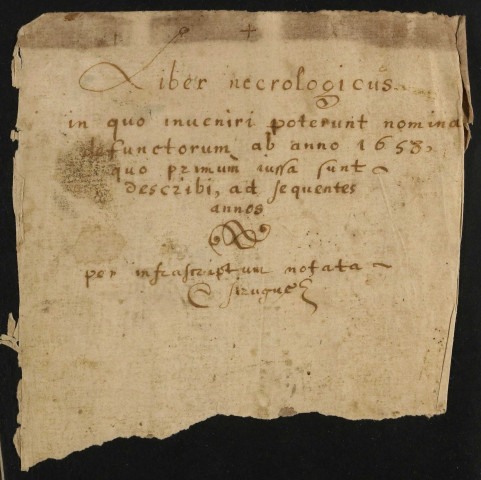 Liber necrologicus
in quo inveniri poterunt nomina
defunctorum, ab anno 1658,
quo primùm iussa sunt
describi, ad sequentes
annos
per infrascriptum notata